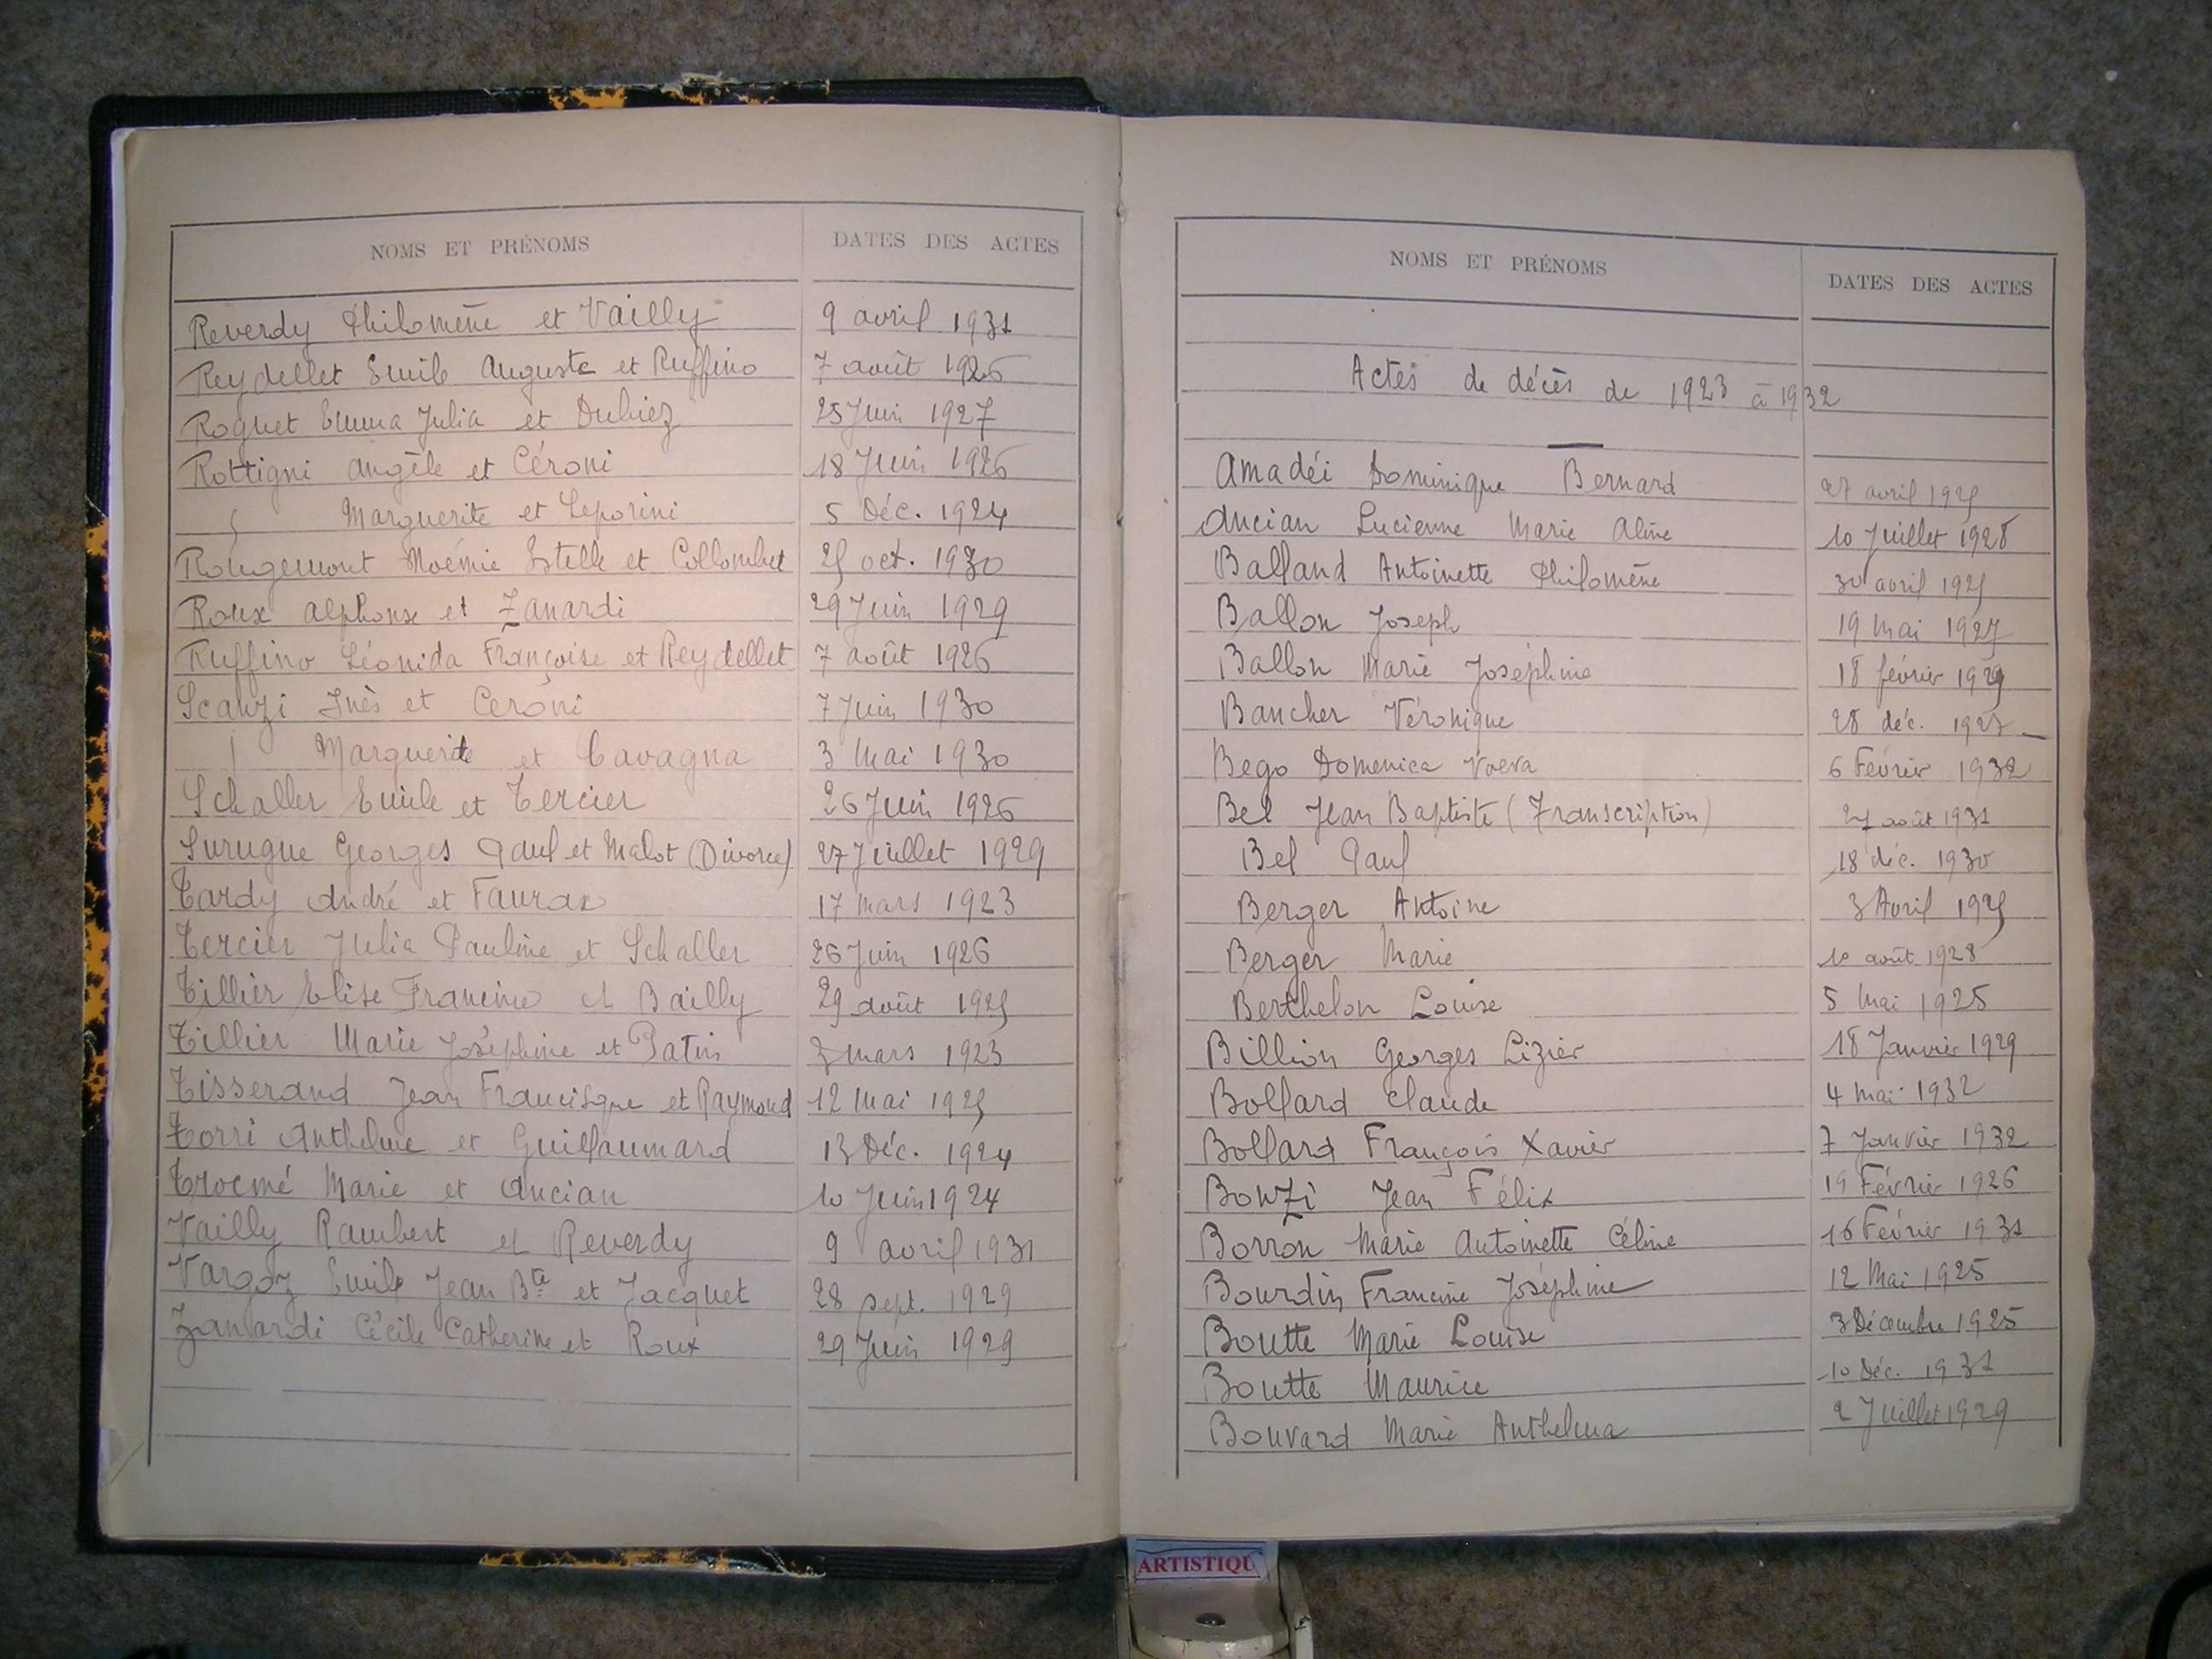 NOMS ET PRÉNOMS DATES DES ACTES
Reverdy Philomène et Vailly 9 avril 1931
Reydellet Emile Auguste et Ruffino 7 août 1926
Roguet Emma Julia et Dubiez 25 Juin 1927
Rottigni Angèle et Céroni 18 Juin 1926
Marguerite et Leporini 5 Déc. 1924
Rougemont Noémie Estelle et Collombet 25 oct. 1930
Roux Alphonse et Zanardi 29 Juin 1929
Ruffino Léonida Françoise et Reydellet 7 août 1926
Scanzi Inès et Ceroni 7 Juin 1930
Marguerite et Cavagna 3 Mai 1930
Schaller Emile et Tercier 26 Juin 1926
Surugue Georges Paul et Malot (Divorce) 27 Juillet 1929
Tardy André et Faurax 17 mars 1923
Tercier Julia Pauline et Schaller 26 Juin 1926
Tillier Elise Francine et Bailly 29 août 1925
Tillier Marie Joséphine et Patin 3 mars 1923
Tisserand Jean Francisque et Raymond 12 Mai 1925
Torri Anthelme et Guillaumard 13 Déc. 1924
Trocmé Marie et Ancian 10 Juin 1924
Vailly Rambert et Reverdy 9 avril 1931
Vargoz Emile Jean Bte et Jacquet 28 sept. 1929
Zanardi Cécile Catherine et Roux 29 Juin 1929
NOMS ET PRÉNOMS DATES DES ACTES
Actes de décès de 1923 à 1932
Amadéi Dominique Bernard 27 avril 1925
Ancian Lucienne Marie Aline 10 Juillet 1928
Balland Antoinette Philomène 30 avril 1925
Ballon Joseph 19 Mai 1927
Ballon Marie Joséphine 18 février 1929
Bancher Véronique 28 déc. 1927
Bego Domenica 6 Février 1932
Bel Jean Baptiste (Transcription) 27 août 1931
Bel Paul 18 déc. 1930
Berger Antoine 3 Avril 1925
Berger Marie 10 août 1928
Berthelon Louise 5 Mai 1925
Billion Georges Lizier 18 Janvier 1929
Bollard Claude 4 mai 1932
Bollard François Xavier 7 Janvier 1932
Bonzi Jean Félix 19 Février 1926
Borron Marie Antoinette Céline 16 Février 1931
Bourdin Francine Joséphine 12 Mai 1925
Boutte Marie Louise 3 Décembre 1925
Boutte Maurice 10 Déc. 1931
Bouvard Marie Anthelma 2 Juillet 1929
ARTISTIQU